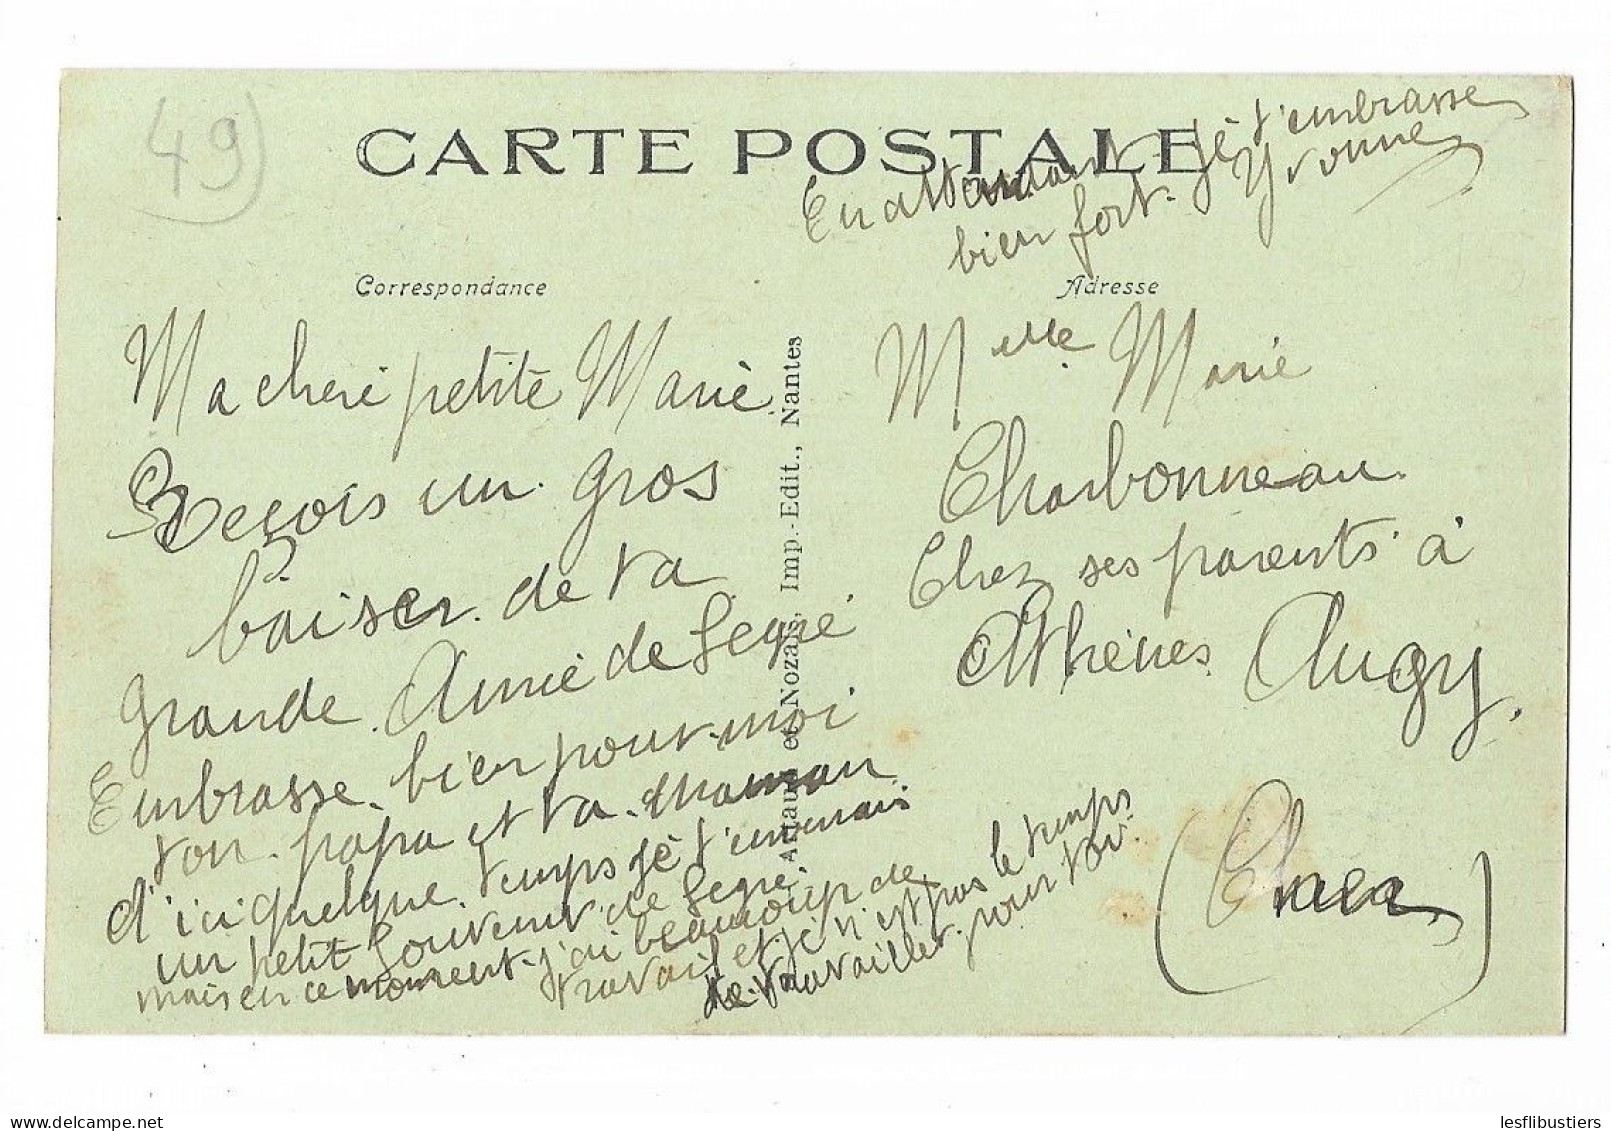 49
CARTE POSTALE
Correspondance
Ma cheré petite Marie
Reçois un gros
baiser de ta
grande Amie de Segré
Embrasse bien pour moi
ton papa et ta maman
d'ici quelque temps je t'
un petit souvenir de Segré.
mais en ce moment j'ai beaucoup de
travail et je n'est pas le temps
de travailler pour toi.
En attendant je t'embrasse
bien fort. Yvonne
Adresse
Melle Marie
Charbonneau
Chez ses parents à
Athènes Augy.
(Cher)
Artaud et Nozais, Imp.-Edit., Nantes
delcampe.net
lesflibustiers